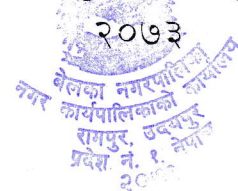 २०७३
बेलका नगरपालिका
नगर कार्यपालिकाको कार्यालय
रामपुर, उदयपुर
प्रदेश नं. १, नेपाल